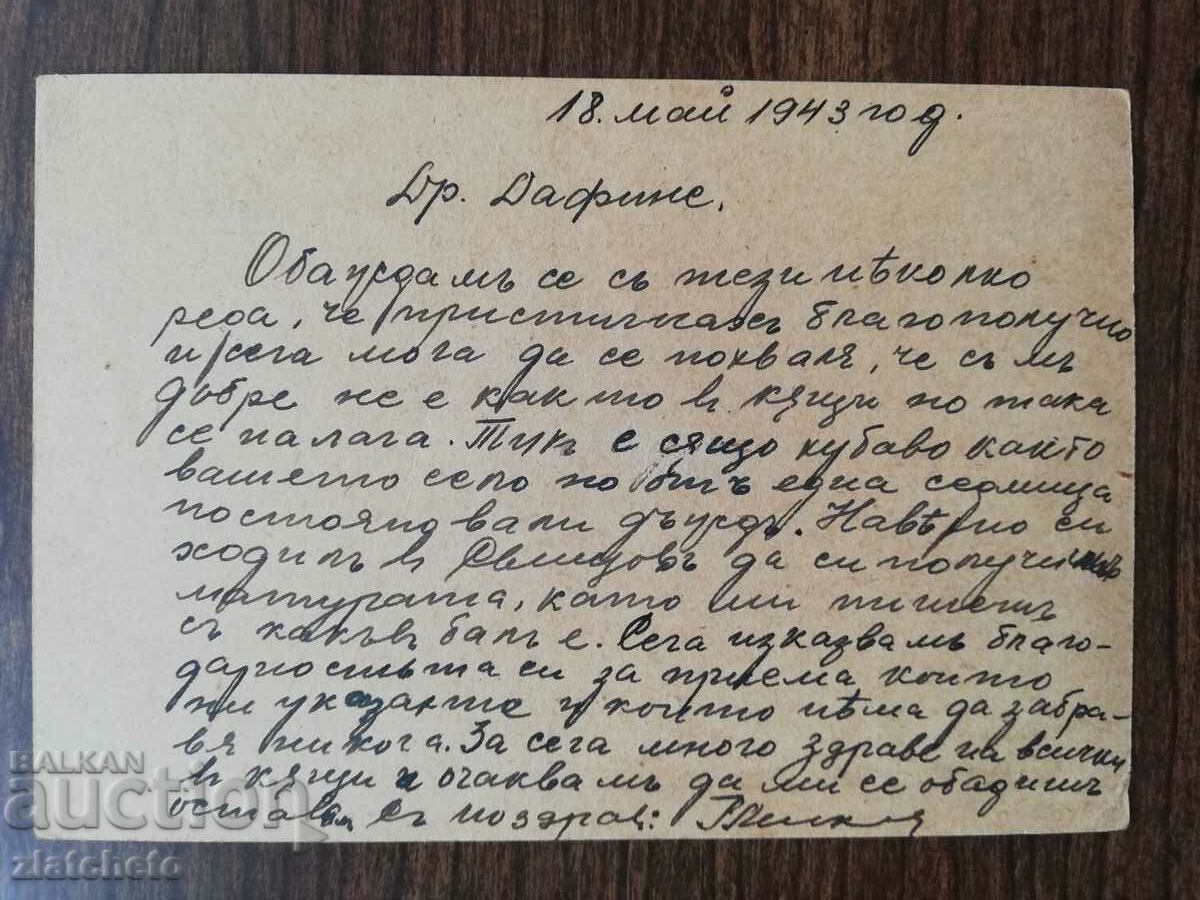 18. май 1943 год.
Др. Дафине.
Обаждамъ се съ тези нѣколко
реда, че пристигнахъ благополучно
и сега мога да се похваля, че съмъ
добре не е както в кѫщи но така
се налага. Тукъ е сѫщо хубаво както
вашето село но отъ една седмица
постоянно вали дъждъ. Навѣрно си
ходилъ в Свищовъ да си получишъ
матурата, като ми пишешъ
съ какъв балъ е. Сега изказвамъ благо-
дарностьта си за приема който
ми указахте и който нѣма да забра-
вя никога. За сега много здраве на всички
в кѫщи и очаквамъ да ми се обадишъ
оставам съ поздрав:
BALKAN
auction
zlatcheto